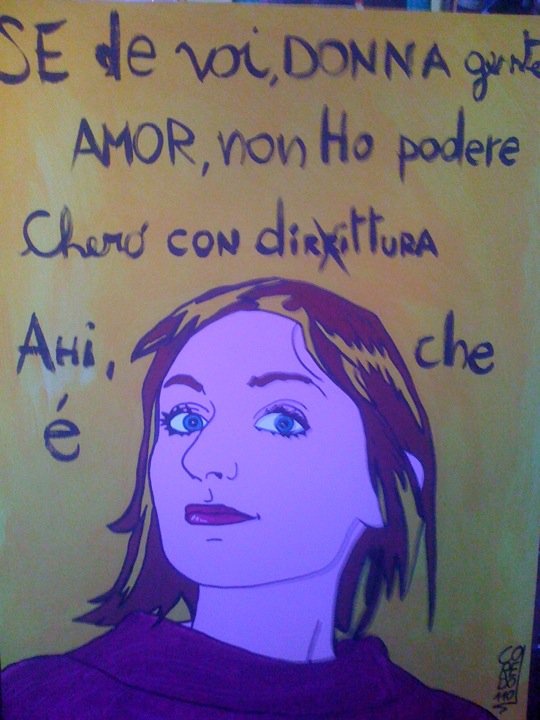 SE de voi, DONNA gente
AMOR, non Ho podere
Cherò CON diRittURA
AHi, che
é